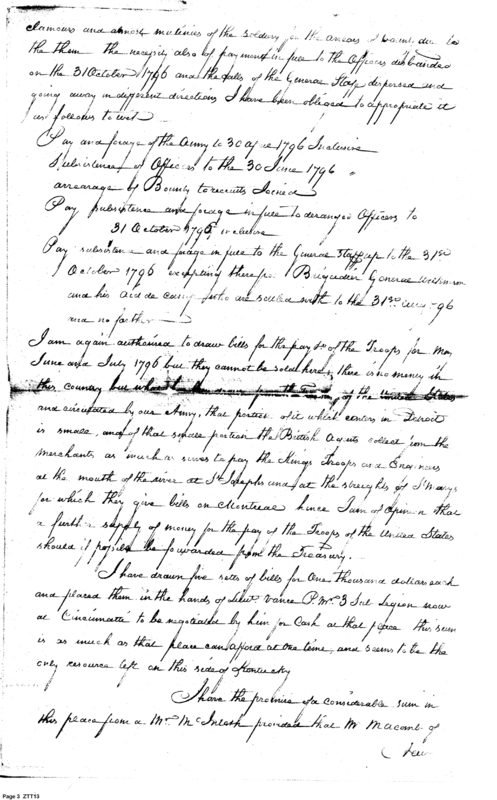 clamours and almost mutinies of the soldiery for the arrears of bounty due to
the them the necessity also of payment in full to the Officers disbanded
on the 31 October 1796 and the calls of the General Staff dispersed and
going away in different directions I have been obliged to appropriate it
as follows to wit
Pay and forage of the Army to 30 April 1796 Inclusive
Subsistence of Officers to the 30 June 1796 "
arrearage of Bounty to recruits Joined
Pay subsistence and forage in full to deranged Officers to
31 October 1796 inclusive
Pay subsistence and forage in full to the General Staff up to the 31st
October 1796 excepting therefrom Brigadier General Wilkinson
and his aid de camp who are settled with to the 31st 96
and no farther
I am again authorised to draw bills for the pay &c of the Troops for May
June and July 1796 but they cannot be sold here, there is no money in
this country but what the of the United States
and circulated by our Army, that portion of it which centers in Detroit
is small, and of that small portion the British Agents collect from the
merchants as much as serves to pay the Kings Troops and Engineers
at the mouth of the river at St Josephs and at the streights of St Marys
for which they give bills on Montreal hence I am of opinion that
a further supply of money for the pay of the Troops of the United States
should if possible be forwarded from the Treasury.
I have drawn five setts of bills for One thousand dollars each
and placed them in the hands of Lieut Vance P. Mr. 3 Sub Legion now
at Cincinnatti to be negotiated by him for Cash at that place this sum
is as much as that place can afford at one time, and seems to be the
only resource left on this side of Kentucky
I have the promise of a considerable sum in
this place from a Mr. McIntosh provided that Mr Macomb of
New
Page 3 ZTT13